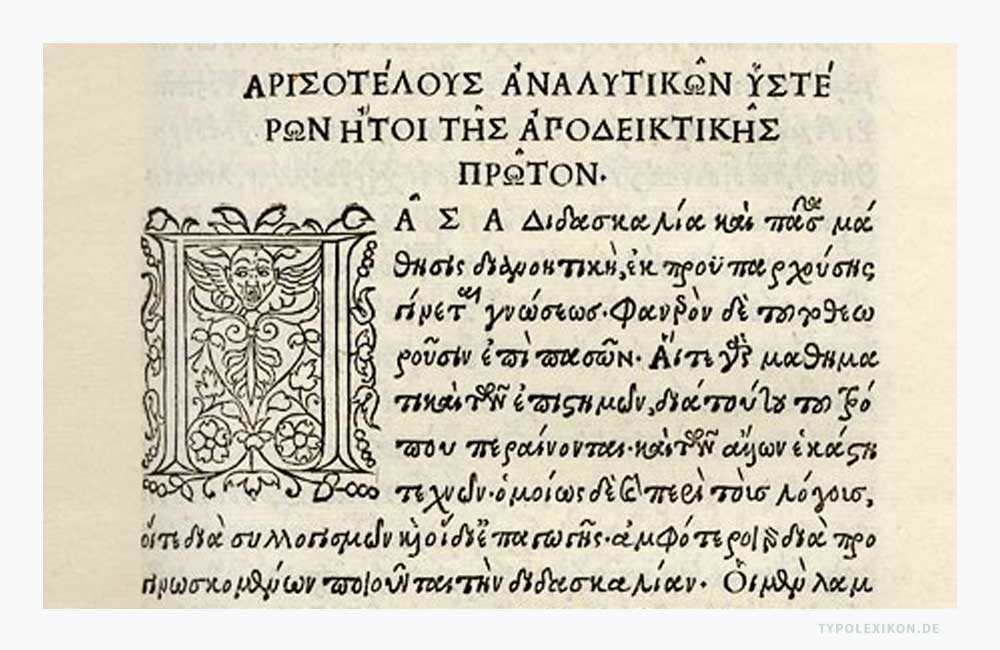 ΑΡΙΣΟΤΈΛΟΥΣ ἈΝΑΛΥΤΙΚΩ͂Ν ὙΣΤΈ
ΡΩΝ ἬΤΟΙ ΤΗ͂Σ ἈΠΟΔΕΙΚΤΙΚΗ͂Σ
ΠΡΩ͂ΤΟΝ.
Π Α͂ Σ Α Διδασκαλία καὶ πᾶσα μά
θησις διανοητικὴ, ἐκ προϋπαρχούσης
γίνεται γνώσεως. Φανερὸν δὲ τοῦτο θεω
ροῦσιν ἐπὶ πασῶν. Ἅιτε γὰρ μαθημα
τικαὶ τῶν ἐπιστημῶν, διὰ τούτου τοῦ τρό
που περαίνονται. καὶ τῶν ἄλλων ἑκάστη
τεχνῶν. ὁμοίως δὲ καὶ περὶ τοὺς λόγους,
οἵτε διὰ συλλογισμῶν καὶ οἱ δι' ἐπαγωγῆς. ἀμφότεροι γὰρ διὰ προ
γινωσκομένων ποιοῦνται τὴν διδασκαλίαν. Οἱ μὲν λαμ
TYPOLEXIKON.DE